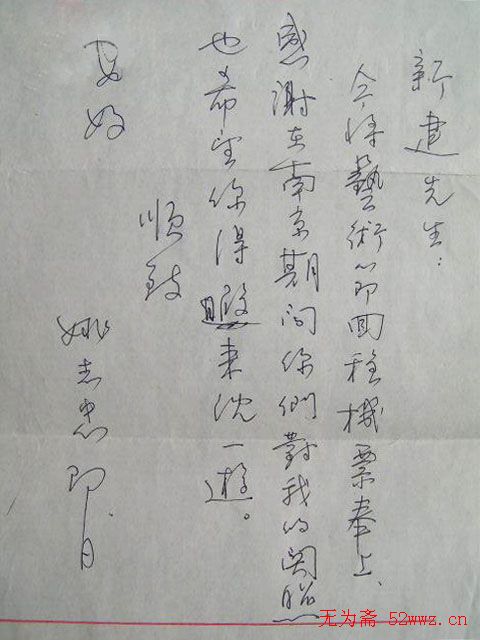 新建先生：
今将藝術節回程機票奉上、
感謝在南京期间你們對我的関照
也希望你得暇来沈一遊。
順致
安好
姚志忠即日
无为斋 52wwz.cn